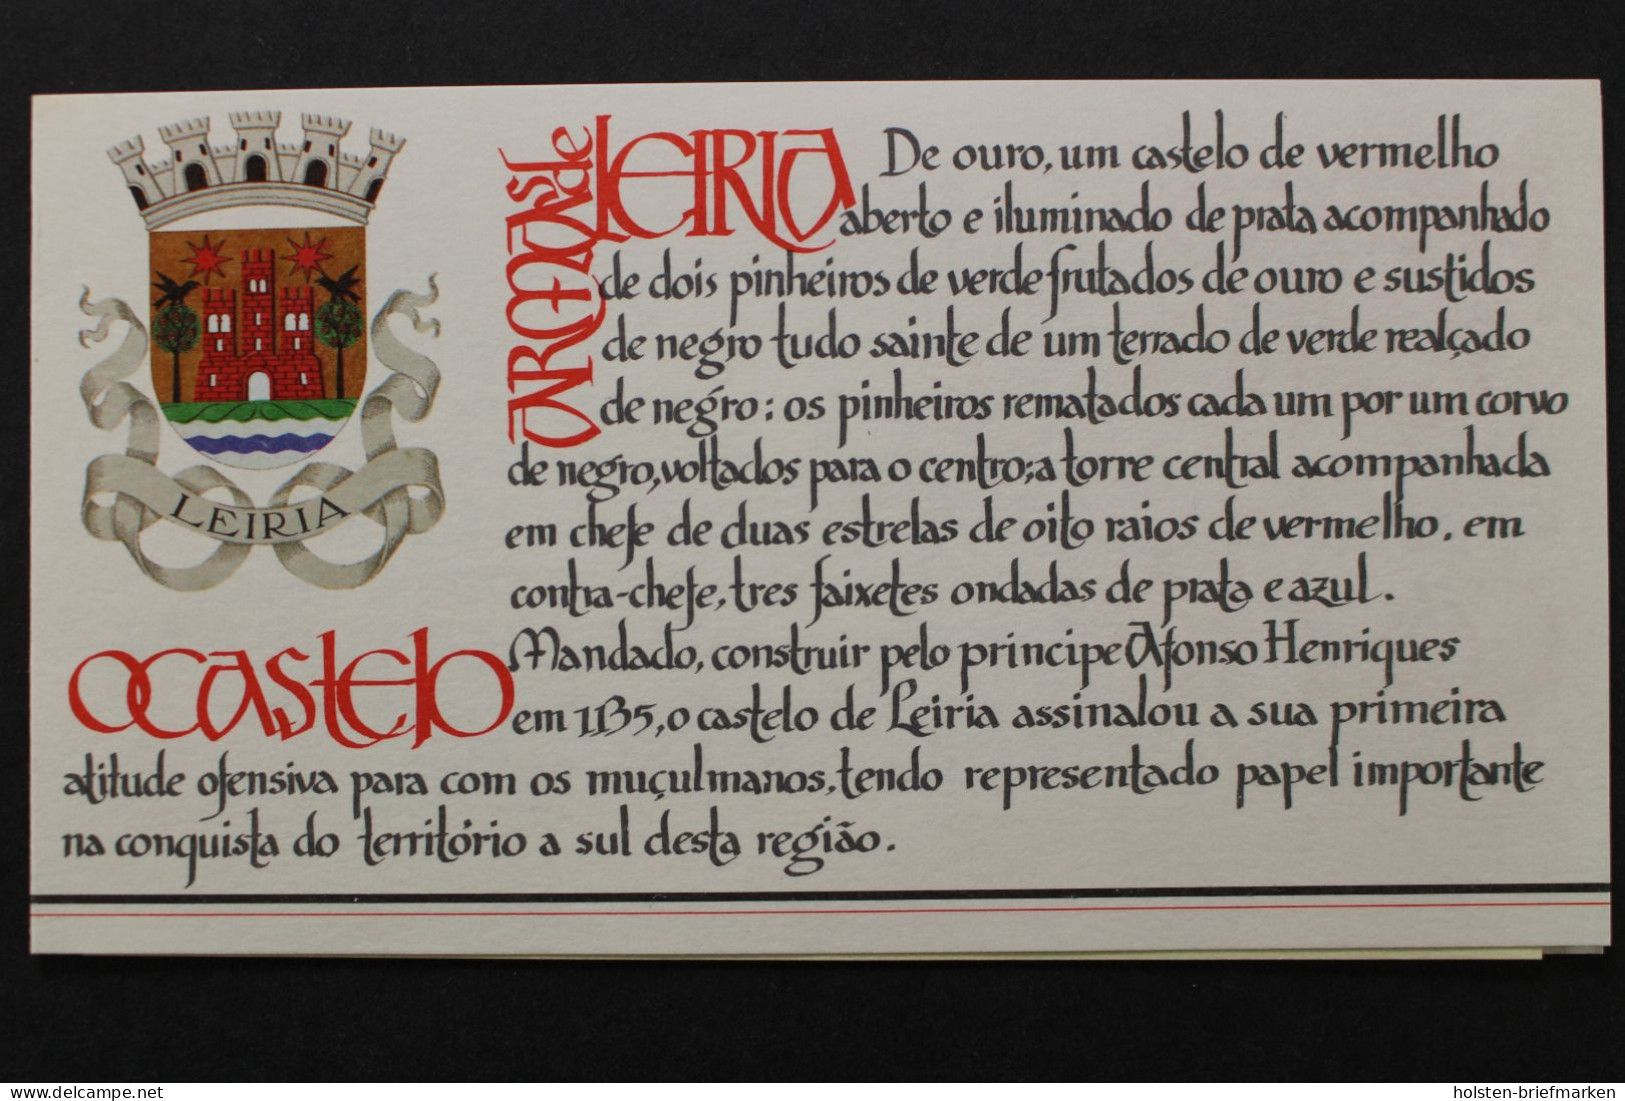 ARMAS de LEIRIA
De ouro, um castelo de vermelho
aberto e iluminado de prata acompanhado
de dois pinheiros de verde frutados de ouro e sustidos
de negro tudo sainte de um terrado de verde realçado
de negro: os pinheiros rematados cada um por um corvo
de negro, voltados para o centro; a torre central acompanhada
em chefe de duas estrelas de oito raios de vermelho, em
contra-chefe, tres faixetes ondadas de prata e azul.
LEIRIA
O CASTELO
Mandado, construir pelo principe Afonso Henriques
em 1135, o castelo de Leiria assinalou a sua primeira
atitude ofensiva para com os muçulmanos, tendo representado papel importante
na conquista do território a sul desta região.
www.delcampe.net
holsten-briefmarken